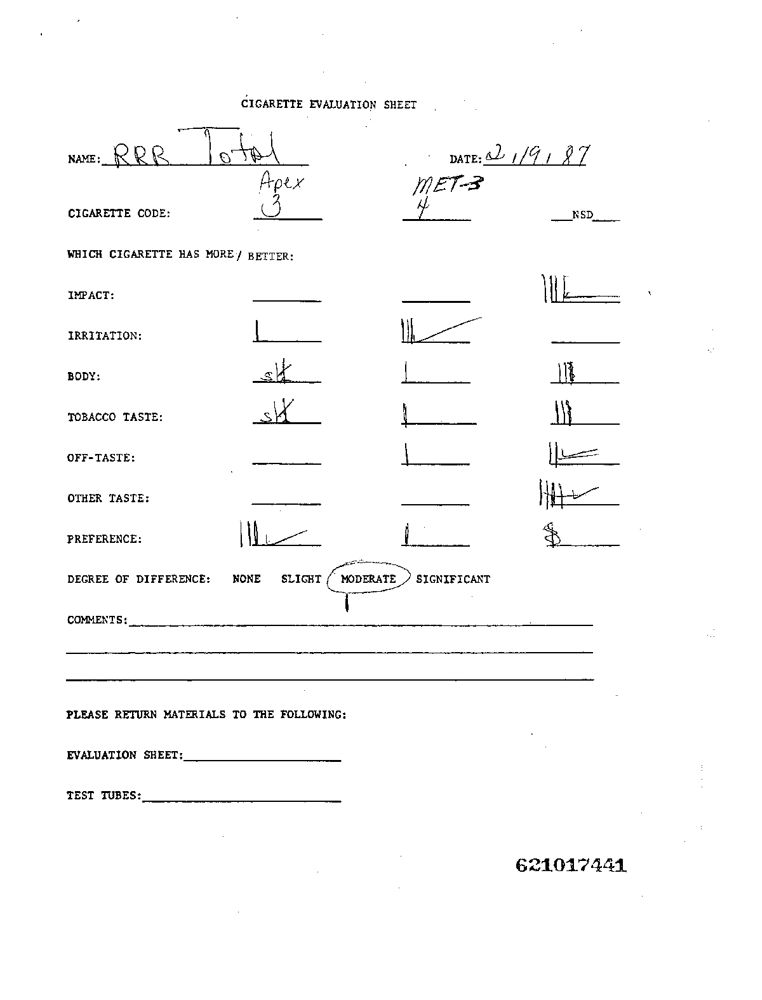 CIGARETTE EVALUATION SHEET
NAME: RRR Total DATE: 2/19/87
Apex MET-3
CIGARETTE CODE: 3 4 NSD
WHICH CIGARETTE HAS MORE/ BETTER:
IMPACT:
IRRITATION:
BODY:
TOBACCO TASTE:
OFF-TASTE:
OTHER TASTE:
PREFERENCE:
DEGREE OF DIFFERENCE: NONE SLIGHT MODERATE SIGNIFICANT
COMMENTS:
PLEASE RETURN MATERIALS TO THE FOLLOWING:
EVALUATION SHEET:
TEST TUBES:
621017441